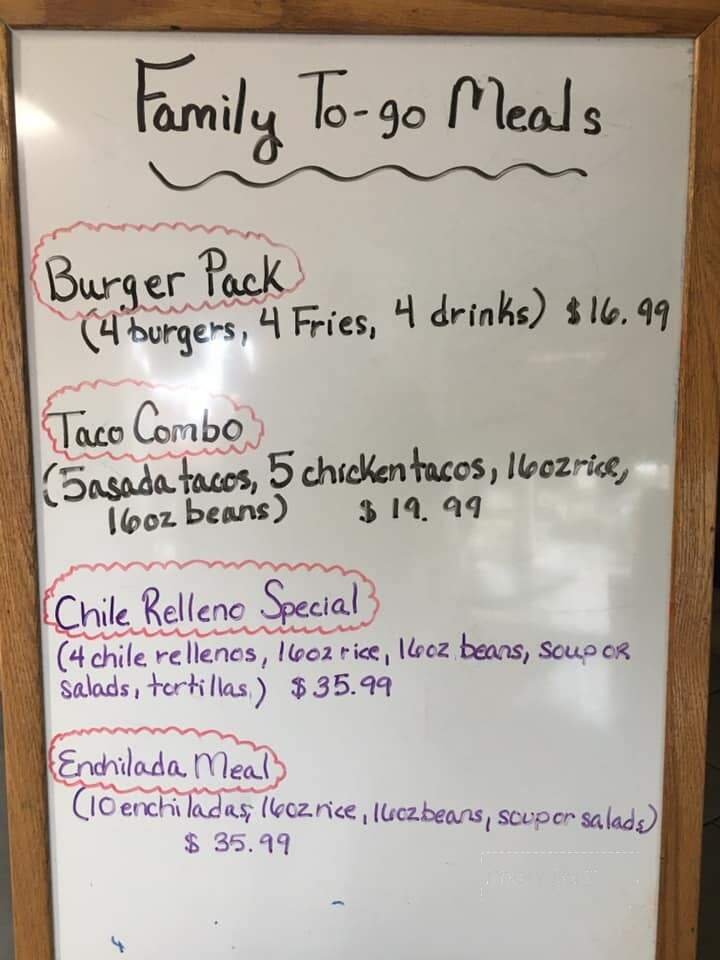 Family To-go Meals
Burger Pack
(4 burgers, 4 Fries, 4 drinks) $16.99
Taco Combo
(5 asada tacos, 5 chicken tacos, 16oz rice,
16oz beans) $19.99
Chile Relleno Special
(4 chile rellenos, 16oz rice, 16oz beans, soup OR
salads, tortillas) $35.99
Enchilada Meal
(10 enchiladas, 16oz rice, 16oz beans, soup or salads)
$35.99
4